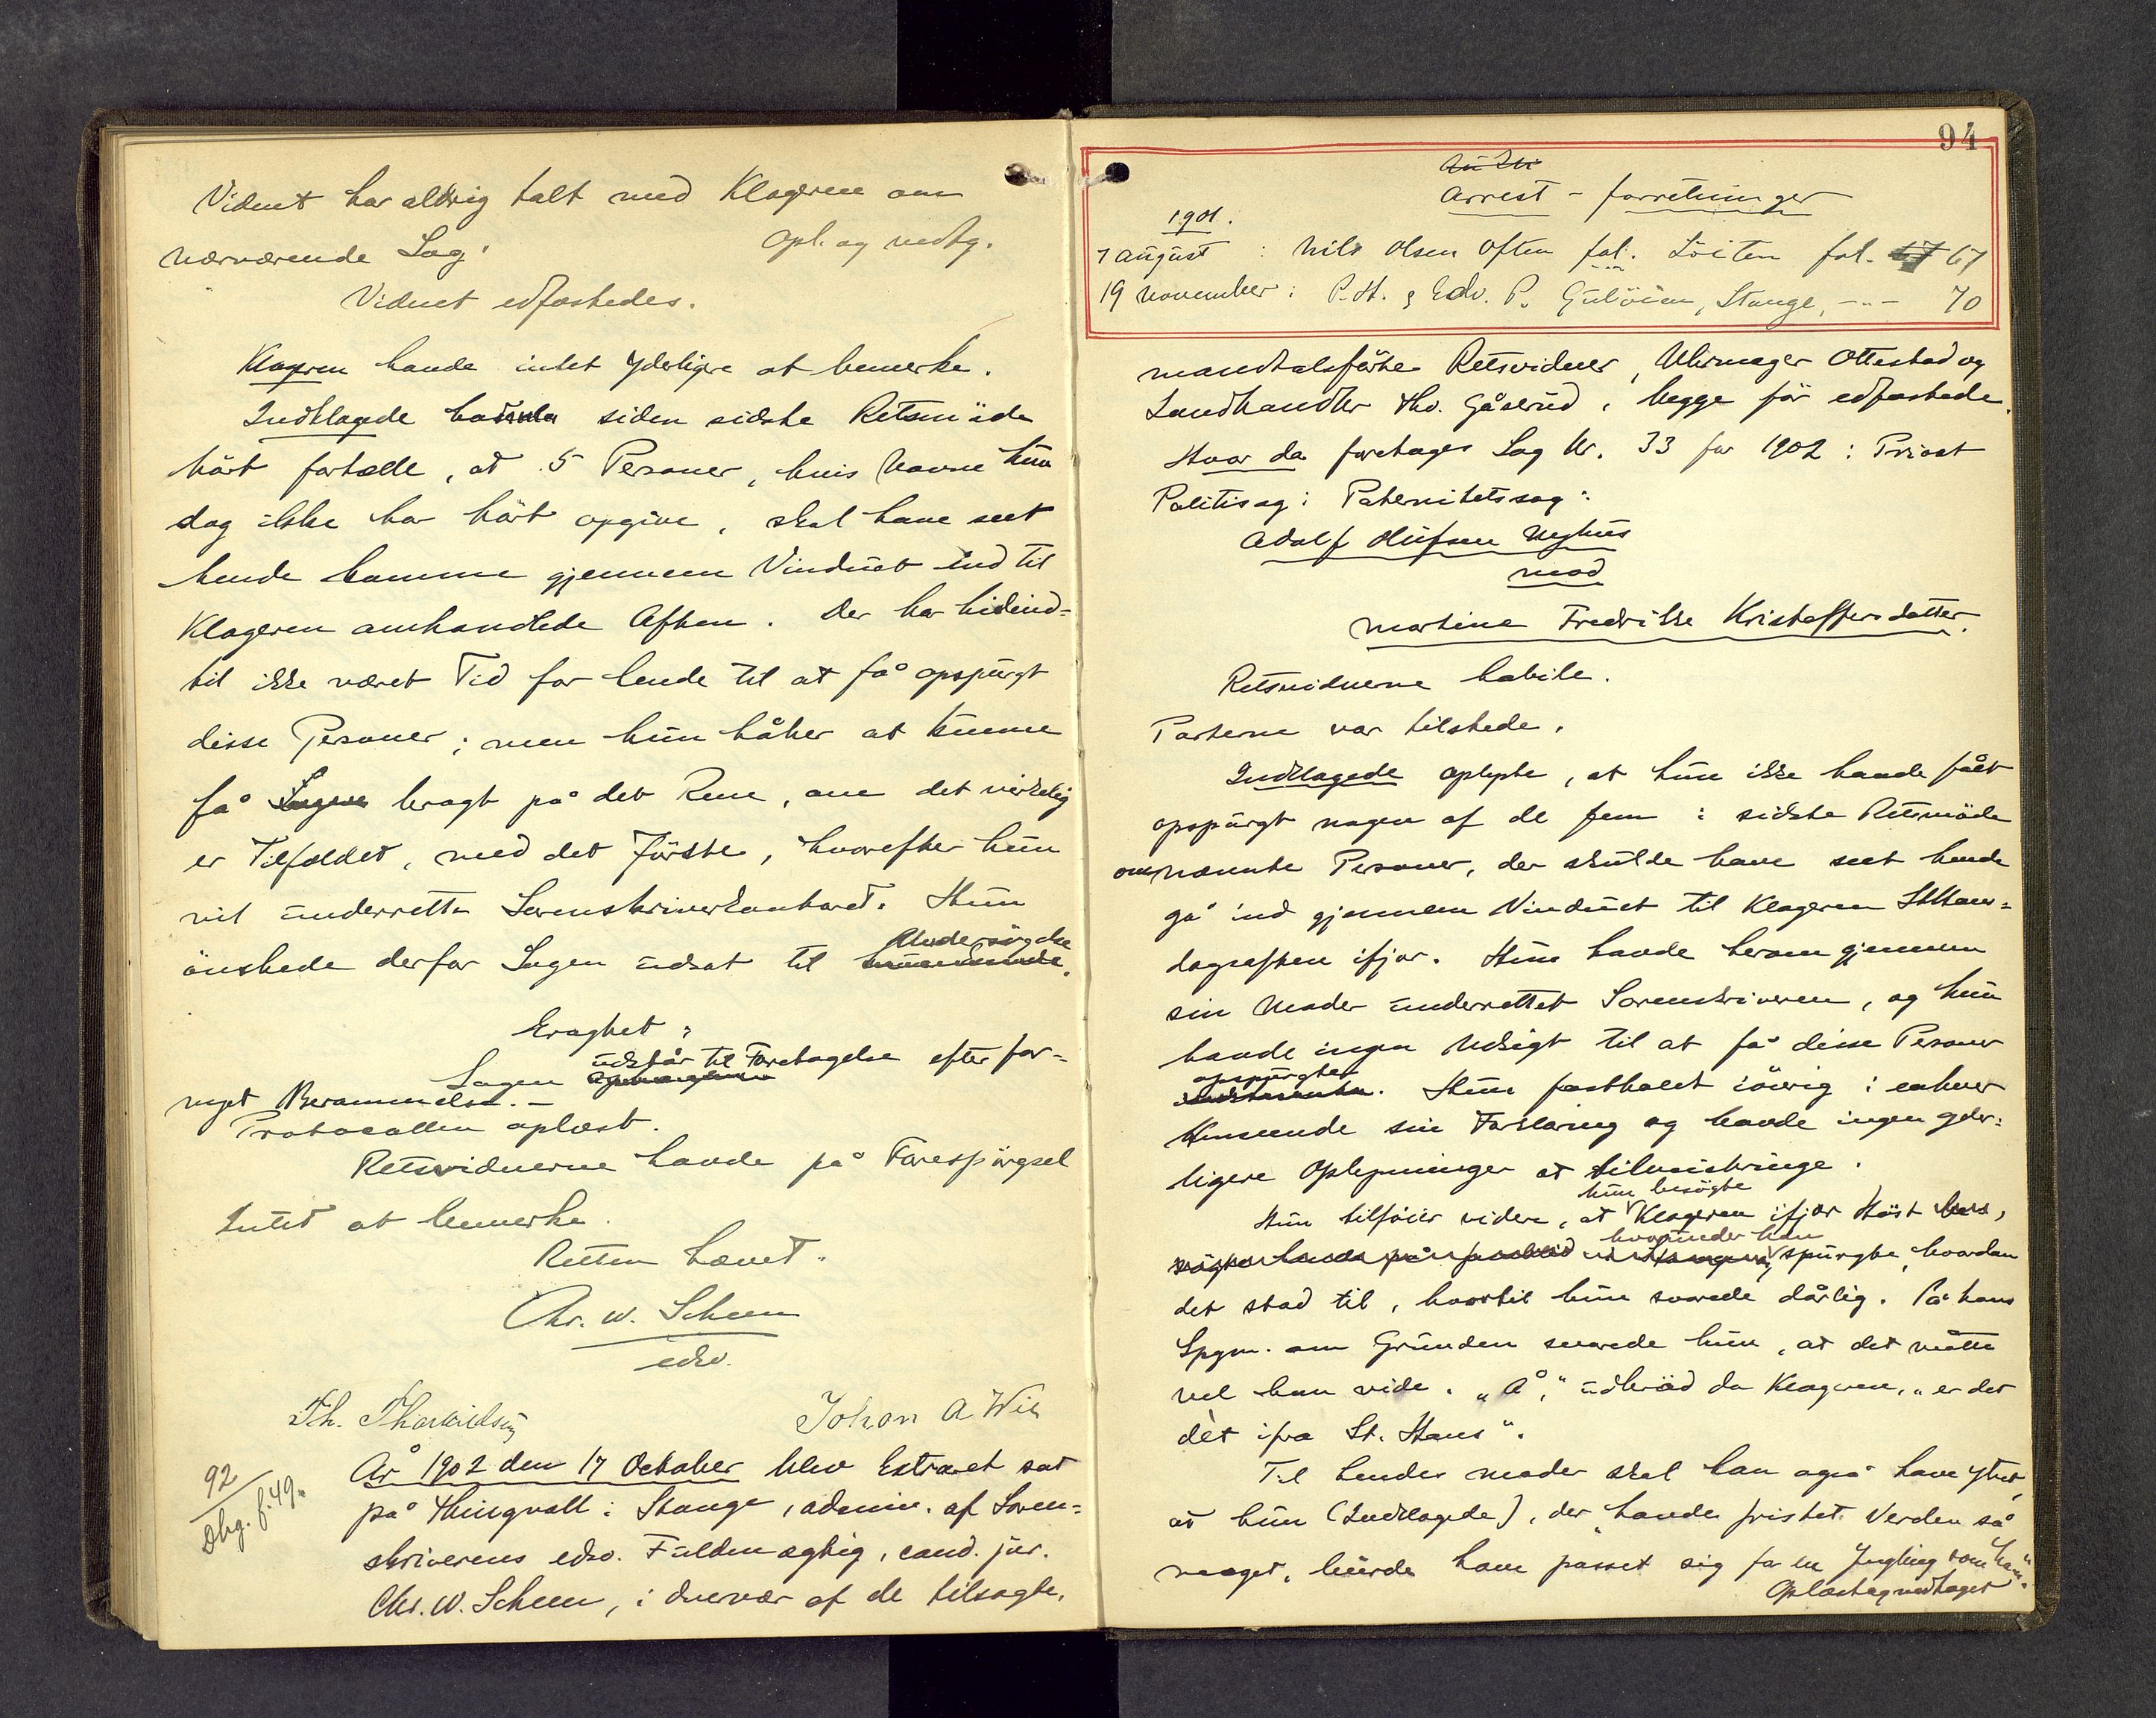 Vidnet har aldrig talt med Klageren om
nærværende Sag.
Opl. og vedtg.
Vidnet edfæstedes.
Klageren havde intet yderligere at bemerke.
Indklagede havde siden sidste Retsmöde
hört fortælle, at 5 Personer, hvis Navne hun
dog ikke har hört opgive, skal have seet
hende komme gjennem Vinduet ind til
Klageren omhandlede Aften. Der har hidind-
til ikke været Tid for hende til at få opspurgt
disse Personer; men hun håber at kunne
få Sagen bragt på det Rene, om det virkelig
er Tilfældet, med det förste, hvorefter hun
vil underrette Sorenskriverkontoret. Hun
Undersögelse
önskede derfor Sagen udsat til
Eragtet:
Sagen udstår til Foretagelse efter for-
nyet Berammelse.-
Protocollen oplæst.
Retsvidnerne havde på Forespörgsel
Intet at bemerke.
Retten hævet.
Chr. W. Scheen
edsv.
Th. Thorkildsen
Johan A Wik
92
Dbg. f. 49.
År 1902 den 17 October blev Extraret sat
på Thingvold i Stange, admin. af Soren-
skriverens edsv. Fuldmægtig, cand. jur.
Chr. W. Scheen, i Overvær af de tilsagte,
94
Arrest - forretninger
1901.
7 august : Nils Olsen Often fol. Löiten fol. 67
19 November : P. H. & Edv. P. Gulöien, Stange, -"- 70
mandtalsförte Retsvidner, Uhrmager Ottestad og
Landhandler Thv. Gåserud, begge för edfæstede.
Hvor da foretoges Sag Nr. 33 for 1902 : Privat
Politisag : Paternitetssag :
Adolf Olufsen Nyhus
mod
Martine Fredrikke Kristoffersdatter.
Retsvidnerne habile.
Parterne var tilstede.
Indklagede oplyste, at hun ikke havde fået
opspurgt nogen af de fem i sidste Retsmöde
omnævnte Personer, der skulde have seet hende
gå ind gjennem Vinduet til Klageren StHans-
dagsaften ifjor. Hun havde herom gjennem
sin Moder underrettet Sorenskriveren, og hun
havde ingen Udsigt til at få disse Personer
opspurgte. Hun fastholdt iövrig i enhver
Henseende sin Forklaring og havde ingen yder-
ligere Oplysninger at tilveiebringe.
hun besögte
Hun tilföier videre, at Klageren ifjor Höst
hvorunder han
spurgte, hvordan
det stod til, hvortil hun svarede dårlig. På hans
Spgm. om Grunden svarede hun, at det måtte
vel han vide. "Å," udbröd da Klageren, "er det
dèt ifra St. Hans".
Til hendes moder skal han også have ytret,
at hun (Indklagede), der "havde fristet Verden så
meget, burde have passet sig for en Yngling som han".
Oplæst og vedtaget